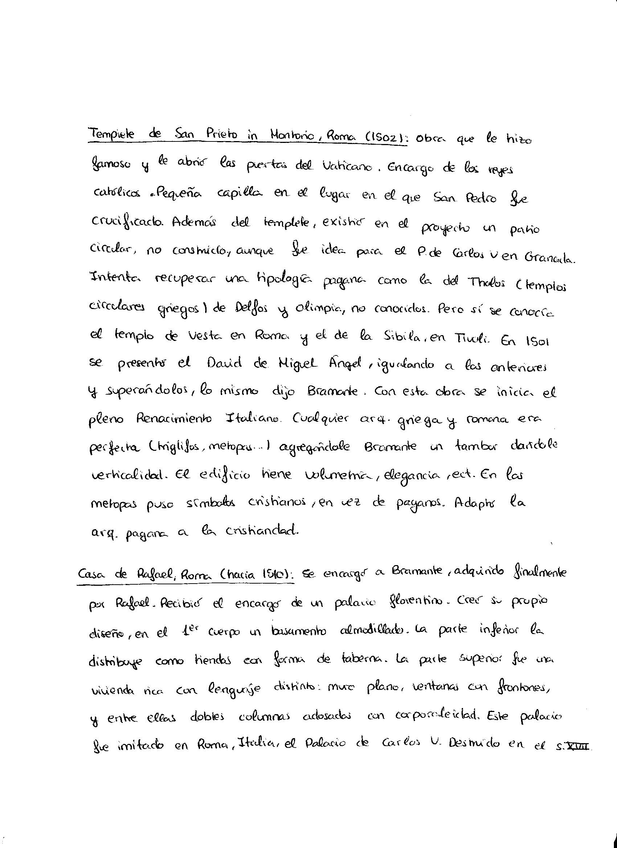 Templete de San Prieto in Montorio, Roma (1502): Obra que le hizo
famoso y le abrió las puertas del Vaticano. Encargo de los reyes
católicos. Pequeña capilla en el lugar en el que San Pedro fue
crucificado. Además del templete, existió en el proyecto un patio
circular, no construido, aunque fue idea para el P. de Carlos V en Granada.
Intenta recuperar una tipología pagana como la del Tholos (templos
circulares griegos) de Delfos y Olimpia, no conocidos. Pero sí se conocía
el templo de Vesta en Roma y el de la Sibila, en Tívoli. En 1501
se presentó el David de Miguel Ángel, igualando a los anteriores
y superándolos, lo mismo dijo Bramante. Con esta obra se inicia el
pleno Renacimiento Italiano. Cualquier arq. griega y romana era
perfecta (triglifos, metopas...) agregándole Bramante un tambor dandole
verticalidad. El edificio tiene volumetría, elegancia, ect. En las
metopas puso símbolos cristianos, en vez de paganos. Adaptó la
arq. pagana a la cristiandad.
Casa de Rafael, Roma (hacia 1510): Se encargó a Bramante, adquirido finalmente
por Rafael. Recibió el encargo de un palacio florentino. Creó su propio
diseño, en el 1er cuerpo un basamento almodillado. La parte inferior la
distribuye como tiendas con forma de taberna. La parte superior fue una
vivienda rica con lenguaje distinto: muro plano, ventanas con frontones,
y entre ellas dobles columnas adosadas con corporeleidad. Este palacio
fue imitado en Roma, Italia, el Palacio de Carlos V. Destruido en el s.XVIII